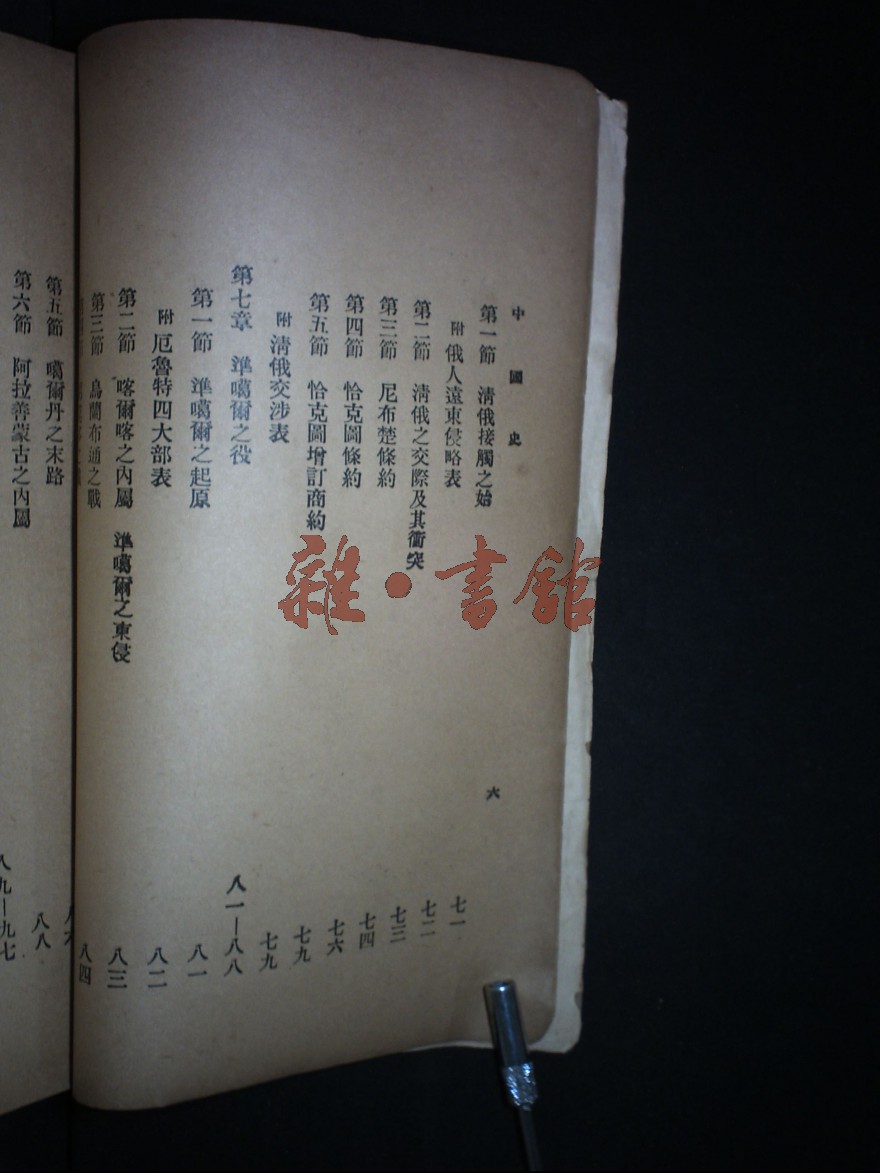 中國史 六
第一節 清俄接觸之始 七一
附 俄人遠東侵略表 七二
第二節 清俄之交際及其衝突 七三
第三節 尼布楚條約 七四
第四節 恰克圖條約 七六
第五節 恰克圖增訂商約 七九
附 清俄交涉表 七九
第七章 準噶爾之役 八一—八八
第一節 準噶爾之起原 八一
附 厄魯特四大部表 八二
第二節 喀爾喀之內屬 準噶爾之東侵 八三
第三節 烏蘭布通之戰 八四
第五節 噶爾丹之末路
第六節 阿拉善蒙古之內屬 八八
八九—九七
雜·書館